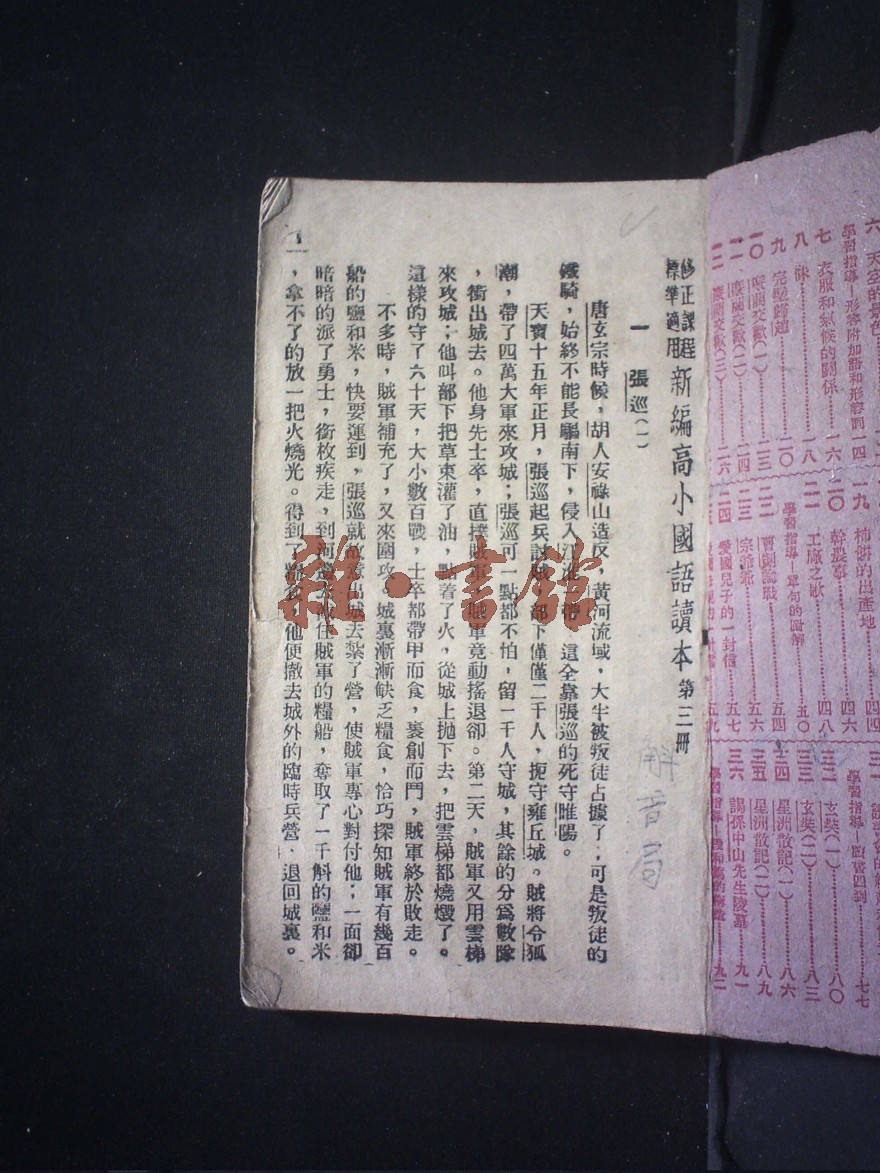 修正課程
標準適用
新編高小國語讀本 第三冊
一 張巡(一)
唐玄宗時候,胡人安祿山造反,黃河流域,大半被叛徒占據了;可是叛徒的
鐵騎,始終不能長驅南下,侵入江淮一帶,這全靠張巡的死守睢陽。
天寶十五年正月,張巡起兵討賊,部下僅僅二千人,扼守雍丘城。賊將令狐
潮,帶了四萬大軍來攻城;張巡可一點都不怕,留一千人守城,其餘的分爲數隊
,衝出城去。他身先士卒,直撲賊軍,賊軍竟動搖退卻。第二天,賊軍又用雲梯
來攻城;他叫部下把草束灌了油,點着了火,從城上拋下去,把雲梯都燒燬了。
這樣的守了六十天,大小數百戰,士卒都帶甲而食,裹創而鬥,賊軍終於敗走。
不多時,賊軍補充了,又來圍攻。城裏漸漸缺乏糧食,恰巧探知賊軍有幾百
船的鹽和米,快要運到,張巡就故意出城去紮了營,使賊軍專心對付他;一面卻
暗暗的派了勇士,銜枚疾走,到河邊去截住賊軍的糧船,奪取了一千斛的鹽和米
,拿不了的放一把火燒光。得到了糧食,他便撤去城外的臨時兵營,退回城裏。
一
雜·書館
解音局
六 天空的景色
學習指導—形容附加語和形容詞 一四
七 衣服和氣候的關係 一六
八 味 一八
九 完璧歸趙 二〇
一〇 慶商交歡(一) 二三
一一 慶商交歡(二) 二四
一二 慶商交歡(三) 二六
一九 柿餅的出產地 四四
二〇 幹農事 四六
二一 工廠之歌 四八
學習指導—單句的圖解 五〇
二二 曹劌論戰 五四
二三 宗爺爺 五六
二四 愛國兒子的一封信 五七
五九
七七
三二 玄奘(一) 八〇
三三 玄奘(二) 八三
三四 星洲散記(一) 八六
三五 星洲散記(二) 八九
三六 謁孫中山先生陵墓 九一
九二